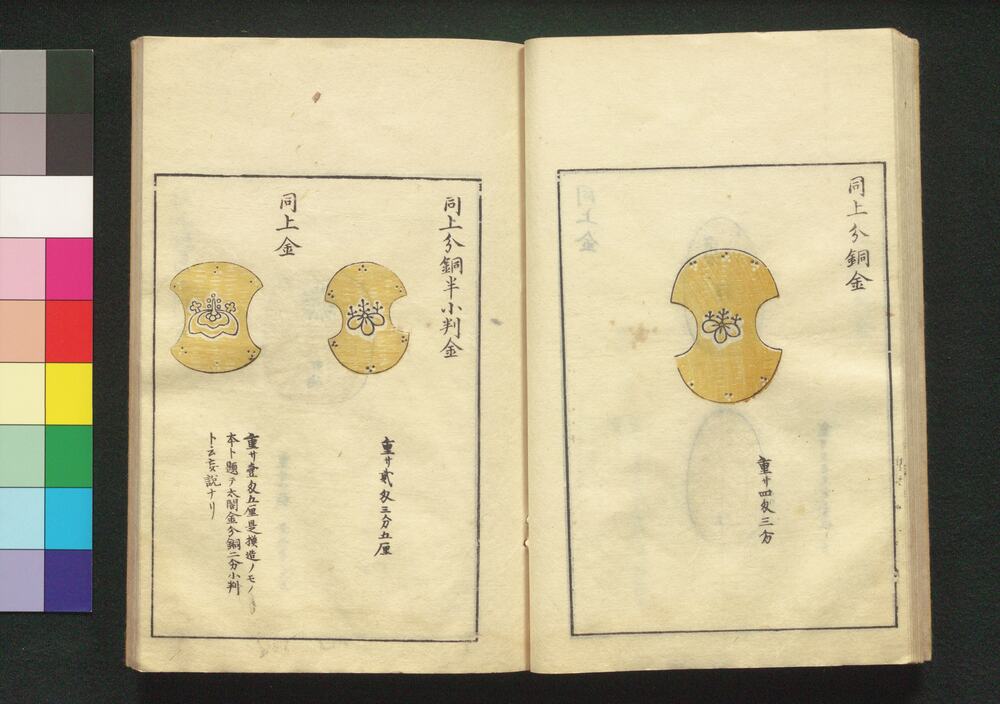 同上分銅金
重サ四匁三分
同上分銅半小判金
重サ貳匁三分五厘
同上金
重サ壹匁五厘是模造ノモノ
本ト題テ太閤金分銅二分小判
ト云妄説ナリ